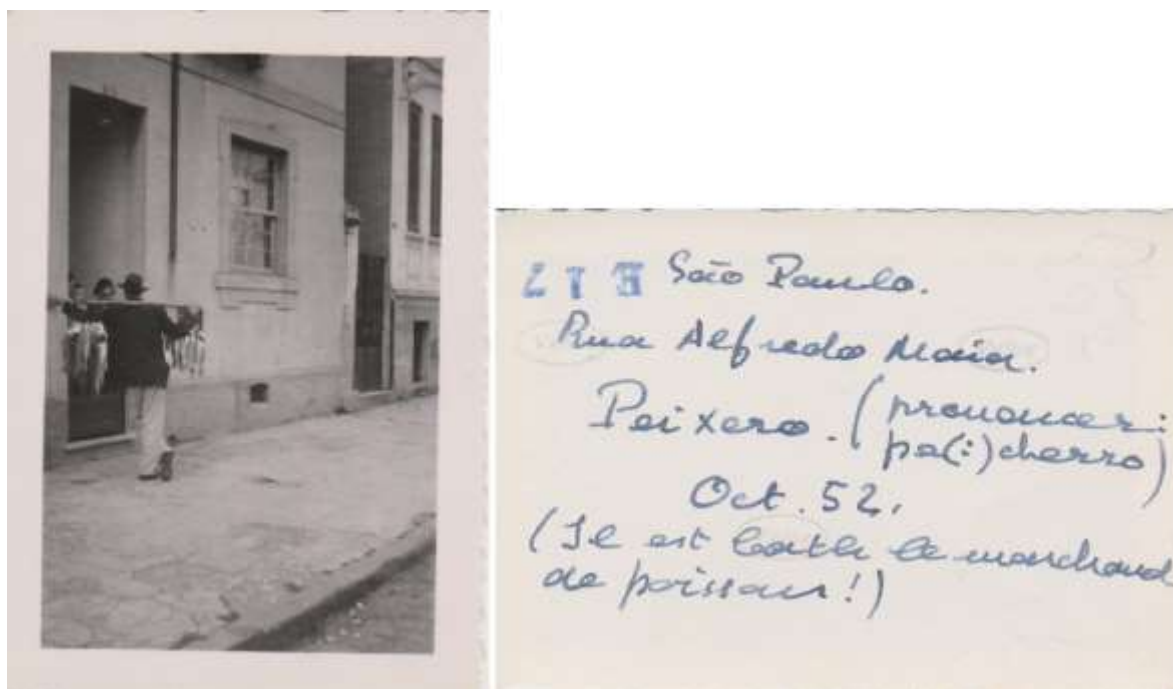 E 1 7 São Paulo.
Rua Alfredo Maia.
Peixero. (prononcer:
pa(:)cherro)
Oct. 52.
(Il est le marchand
de poissons!)